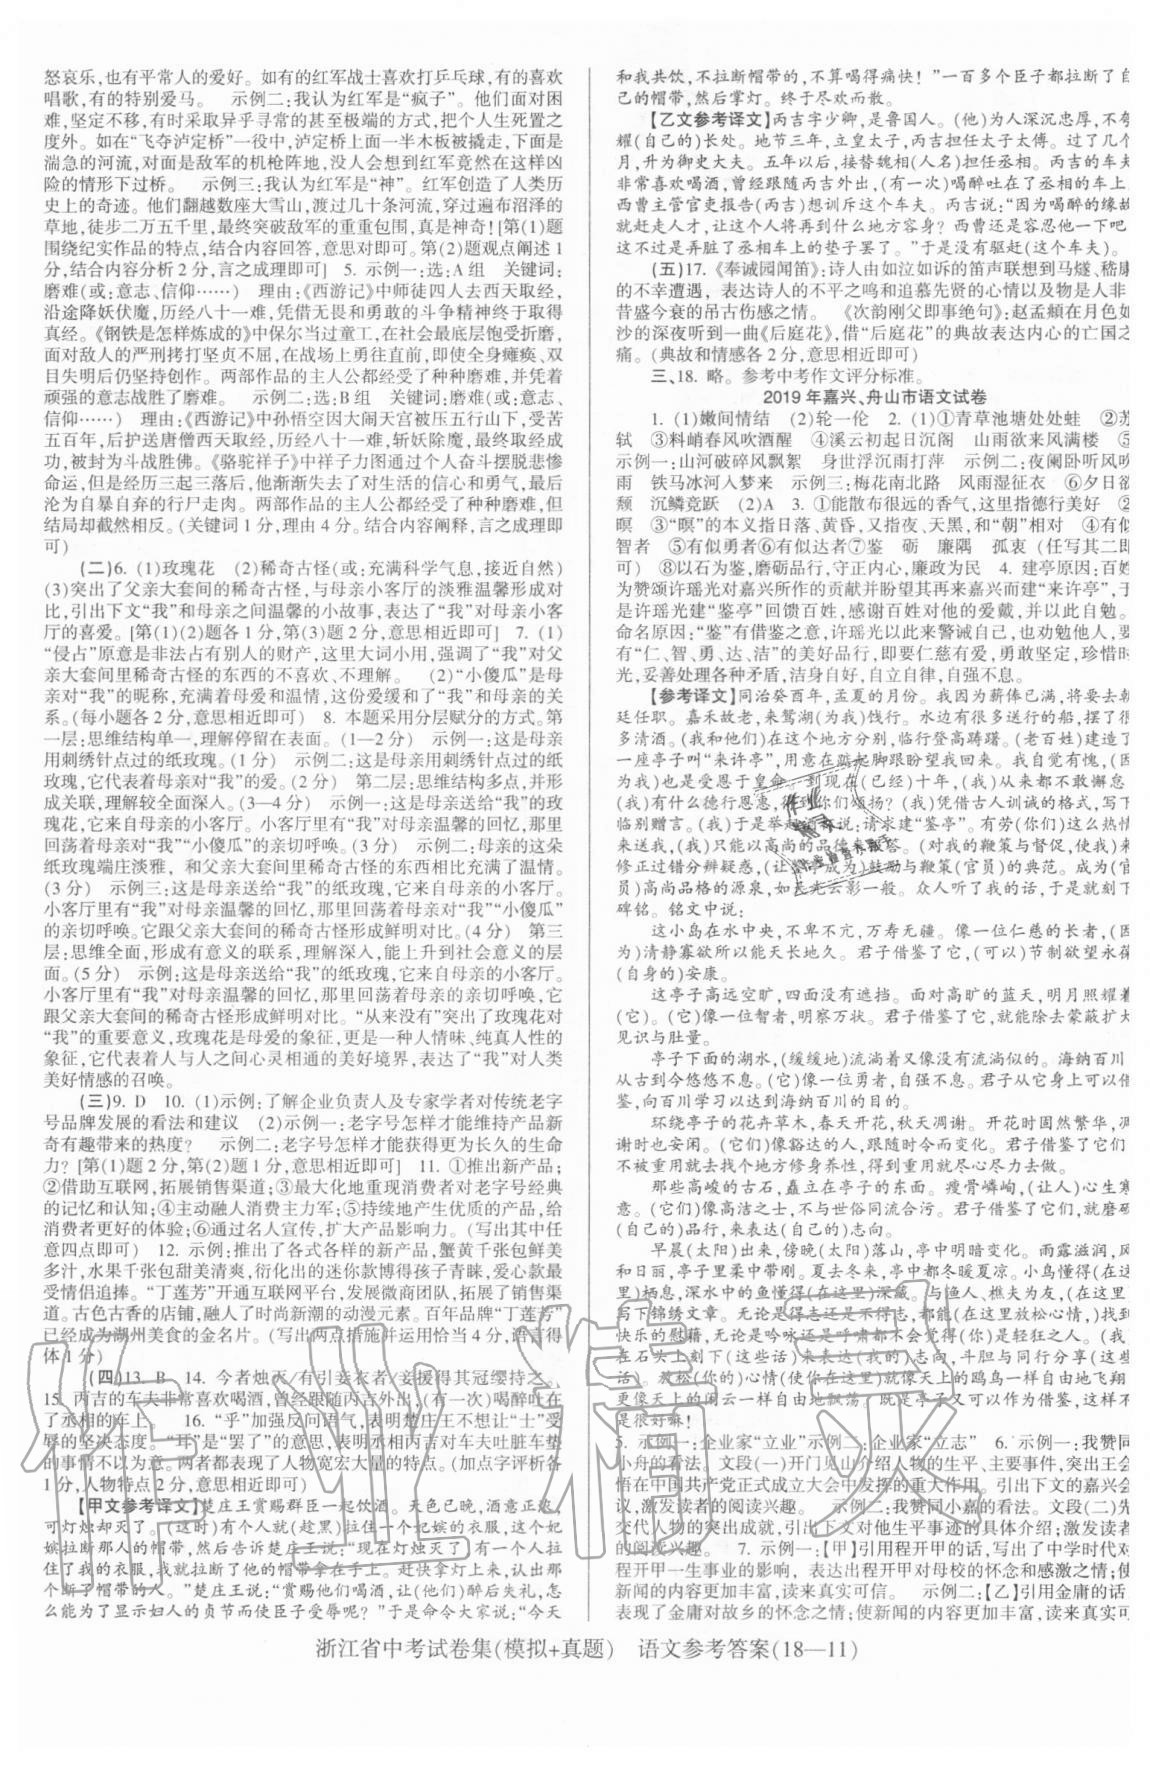 怒哀乐,也有平常人的爱好。如有的红军战士喜欢打乒乓球,有的喜欢
唱歌,有的特别爱马。 示例二:我认为红军是“疯子”。他们面对困
难,坚定不移,有时采取异乎寻常的甚至极端的方式,把个人生死置之
度外。如在“飞夺泸定桥”一役中,泸定桥上面一半木板被撬走,下面是
湍急的河流,对面是敌军的机枪阵地,没想到红军竟然在这样凶
险的情形下过桥。 示例三:我认为红军是“神”。红军创造了人类历
史上的奇迹。他们翻越数座大雪山,渡过几十条河流,穿过遍布沼泽的
草地,徒步二万五千里,最终突破敌军的重重包围,真是神奇![第(1)题
围绕纪实作品的特点,结合内容回答,意思对即可。第(2)题观点阐述1
分,结合内容分析2分,言之成理即可] 5. 示例一:选:A组 关键词:
磨难(或:意志、信仰……) 理由:《西游记》中师徒四人去西天取经,
沿途降妖伏魔,历经八十一难,凭借无畏和勇敢的斗争精神终于取得
真经。《钢铁是怎样炼成的》中保尔当过童工,在社会最底层饱受折磨,
面对敌人的严刑拷打坚贞不屈,在战场上勇往直前,即使全身瘫痪、双
目失明后仍坚持创作。两部作品的主人公都经受了种种磨难,并凭着
顽强的意志战胜了磨难。 示例二:选:B组 关键词:磨难(或:意志、
信仰……) 理由:《西游记》中孙悟空因大闹天宫被压五行山下,受苦
五百年,后来护送唐僧西天取经,历经八十一难,斩妖除魔,最终取得成
功,被封为斗战胜佛。《骆驼祥子》中祥子力图通过个人奋斗摆脱悲惨
命运,但是经历三起三落后,他渐渐失去了对生活的信心和勇气,最后
沦为自暴自弃的行尸走肉。两部作品的主人公都经受了种种磨难,但
结局却截然相反。(关键词1分,理由4分。结合内容阐释,言之成理即
可)
(二)6. (1)玫瑰花 (2)稀奇古怪(或:充满科学气息,接近自然)
(3)突出了父亲大套间的稀奇古怪,与母亲小客厅的淡雅温馨形成对
比,引出下文“我”和母亲之间温馨的小故事,表达了“我”对母亲小客
厅的喜爱。[第(1)(2)题各1分,第(3)题2分,意思相近即可] 7. (1)
“侵占”原意是非法占有别人的财产,这里大词小用,强调了“我”对父
亲大套间里稀奇古怪的东西的不喜欢、不理解。 (2)“小傻瓜”是母
亲对“我”的昵称,充满着母爱和温情,这份爱缓和了“我”与母亲的关
系。(每小题各2分,意思相近即可) 8. 本题采用分层赋分的方式。第
一层:思维结构单一,理解停留在表面。(1—2分) 示例一:这是母亲
用刺绣针点过的纸玫瑰。(1分) 示例二:这是母亲用刺绣针点过的纸
玫瑰,它代表着母亲对“我”的爱。(2分) 第二层:思维结构多点,并
形成关联,理解较全面深入。(3—4分) 示例一:这是母亲送给“我”的玫
瑰花,它来自母亲的小客厅。小客厅里有“我”对母亲温馨的回忆,那里
回荡着母亲对“我”“小傻瓜”的亲切呼唤。(3分) 示例二:母亲的这朵
纸玫瑰端庄淡雅,和父亲大套间里稀奇古怪的东西相比充满了温情。
(3分) 示例三:这是母亲送给“我”的纸玫瑰,它来自母亲的小客厅。
小客厅里有“我”对母亲温馨的回忆,那里回荡着母亲对“我”“小傻瓜”
的亲切呼唤。它跟父亲大套间的稀奇古怪形成鲜明对比。(4分) 第三
层:思维全面,形成有意义的联系,理解深入,能上升到社会意义的层
面。(5分) 示例:这是母亲送给“我”的纸玫瑰,它来自母亲的小客厅。
小客厅里有“我”对母亲温馨的回忆,那里回荡着母亲的亲切呼唤,它
跟父亲大套间的稀奇古怪形成鲜明对比。“从来没有”突出了玫瑰花对
“我”的重要意义,玫瑰花是母爱的象征,更是一种人情味、纯真人性的
象征,它代表着人与人之间心灵相通的美好境界,表达了“我”对人类
美好情感的召唤。
(三)9. D 10. (1)示例:了解企业负责人及专家学者对传统老字
号品牌发展的看法和建议 (2)示例一:老字号怎样才能维持产品新
奇有趣带来的热度? 示例二:老字号怎样才能获得更为长久的生命
力?[第(1)题2分,第(2)题1分,意思相近即可] 11. ①推出新产品;
②借助互联网,拓展销售渠道;③最大化地重现消费者对老字号经典
的记忆和认知;④主动融入消费主力军;⑤持续地产生优质的产品,给
消费者更好的体验;⑥通过名人宣传,扩大产品影响力。(写出其中任
意四点即可) 12. 示例:推出了各式各样的新产品,蟹黄千张包鲜美
多汁,水果千张包甜美清爽,衍化出的迷你款博得孩子青睐,爱心款最
受情侣追捧。“丁莲芳”开通互联网平台,发展微商团队,拓展了销售渠
道。古色古香的店铺,融入了时尚新潮的动漫元素。百年品牌“丁莲芳”
已经成为湖州美食的金名片。(写出两点措施并运用恰当4分,语言得
体1分)
(四)13. B 14. 今者烛灭/有引妾衣者/妾援得其冠缨持之。
15. 丙吉的车夫非常喜欢喝酒,曾经跟随丙吉外出,(有一次)喝醉吐在
了丞相的车上。 16. “乎”加强反问语气,表明楚庄王不想让“士”受
辱的坚决态度。“耳”是“罢了”的意思,表明丞相丙吉对车夫吐脏车垫
的事情不以为意。两者都表现了人物宽宏大量的特点。(加点字评析各
1分,人物特点2分,意思相近即可)
【甲文参考译文】楚庄王赏赐群臣一起饮酒。天色已晚,酒意正
可灯烛却灭了。(这时)有个人就(趁黑)拉住一个妃嫔的衣服,这个妃
嫔扯断那人的帽带,然后告诉楚庄王说:“现在灯烛灭了,有个人拉住
我的衣服,我就拉断了他的帽带拿在手上。赶快拿灯上来,认出那
个断了帽带的人。”楚庄王说:“赏赐他们喝酒,让(他们)醉后失礼,怎
么能为了显示妇人的贞节而使臣子受辱呢?”于是命令大家说:“今天
和我共饮,不拉断帽带的,不算喝得痛快!”一百多个臣子都拉断了自
己的帽带,然后掌灯。终于尽欢而散。
【乙文参考译文】丙吉字少卿,是鲁国人。(他)为人深沉忠厚,不夸
耀(自己的)长处。地节三年,立皇太子,丙吉担任太子太傅。过了几个
月,升为御史大夫。五年以后,接替魏相(人名)担任丞相。丙吉的车夫
非常喜欢喝酒,曾经跟随丙吉外出,(有一次)喝醉吐在了丞相的车上。
西曹主管官吏报告(丙吉)想训斥这个车夫。丙吉说:“因为喝醉的缘故
就赶走人才,让这个人将再到什么地方容身?西曹还是容忍他一下吧,
这不过是弄脏了丞相车上的垫子罢了。”于是没有驱赶(这个车夫)。
(五)17. 《奉诚园闻笛》:诗人由如泣如诉的笛声联想到马燧、嵇康
的不幸遭遇,表达诗人的不平之鸣和追慕先贤的心情以及物是人非、
昔盛今衰的吊古伤感之情。 《次韵刚父即事绝句》:赵孟頫在月色如
沙的深夜听到一曲《后庭花》,借“后庭花”的典故表达内心的亡国之
痛。(典故和情感各2分,意思相近即可)
三、18. 略。参考中考作文评分标准。
2019年嘉兴、舟山市语文试卷
1. (1)嫩间情结 (2)轮一伦 2. (1)①青草池塘处处蛙 ②苏
轼 ③料峭春风吹酒醒 ④溪云初起日沉阁 山雨欲来风满楼 ⑤
示例一:山河破碎风飘絮 身世浮沉雨打萍 示例二:夜阑卧听风吹
雨 铁马冰河入梦来 示例三:梅花南北路 风雨湿征衣 ⑥夕日欲
颓 沉鳞竞跃 (2)A 3. ①能散布很远的香气,这里指德行美好 ②
暝 ③“暝”的本义指日落、黄昏,又指夜、天黑,和“朝”相对 ④有似
智者 ⑤有似勇者⑥有似达者⑦鉴 砺 廉隅 孤衷(任写其二即
可) ⑧以石为鉴,磨砺品行,守正内心,廉政为民 4. 建亭原因:百姓
为赞颂许瑶光对嘉兴所作的贡献并盼望其再来嘉兴而建“来许亭”,于
是许瑶光建“鉴亭”回馈百姓,感谢百姓对他的爱戴,并以此自勉。
命名原因:“鉴”有借鉴之意,许瑶光以来警诫自己,也劝勉他人,要
有“仁、智、勇、达、洁”的美好品行,即要仁慈有爱,勇敢坚定,珍惜时
光,妥善处理各种矛盾,洁身自好,自立自律,自强不息。
【参考译文】同治癸酉年,孟夏的月份。我因为薪俸已满,将要去朝
廷任职。嘉禾故老,来鸳湖(为我)饯行。水边有很多送行的船,摆了很
多清酒。(我和他们)在这个地方分别,临行登高踌躇。(老百姓)建造了
一座亭子叫“来许亭”,用意在踮起脚跟盼望我回来。我自觉有愧,(因
为)也是受恩于皇命。到现在(已经)十年,(我)从来都不敢懈怠。
(我)有什么德行恩惠,得到你们颂扬?(我)凭借古人训诫的格式,写下
临别赠言。(我)于是举起酒杯说:请求建“鉴亭”。有劳(你们)这么热情
来送我,(我)只能以高尚的品德来答。(对我的)鞭策与督促,使我来
修正过错分辨疑惑,(让鉴亭成为)鼓励与鞭策(官员)的典范。成为(官
员)高尚品格的源泉,如长光云影一般。众人听了我的话,于是就刻下
碑铭。铭文中说:
这小岛在水中央,不卑不亢,万寿无疆。像一位仁慈的长者,(因
为)清静寡欲所以能天长地久。君子借鉴了它,(可以)节制欲望永葆
(自身的)安康。
这亭子高远空旷,四面没有遮挡。面对高旷的蓝天,明月照耀着
(它)。(它)像一位智者,明察万状。君子借鉴了它,就能除去蒙蔽扩大
见识与肚量。
亭子下面的湖水,(缓缓地)流淌着又像没有流淌似的。海纳百川
从古到今悠悠不息。(它)像一位勇者,自强不息。君子从它这里借
鉴,向百川学习以达到海纳百川的目的。
环绕亭子的花卉草木,春天开花,秋天凋谢。开花时固然繁华,凋
谢时也安闲。(它们)像豁达的人,跟随时令而变化。君子借鉴了它们,
不被重用就找个地方修身养性,得到重用就尽心尽力去做。
那些高峻的古石,矗立在亭子的东面。瘦骨嶙峋,(让人)心生寒
意。(它们)像高洁之士,不与世俗同流合污。君子借鉴了它们,磨砺
(自己的)品行,来表达(自己的)志向。
早晨(太阳)出来,傍晚(太阳)落山,亭中明暗变化。雨露滋润,风
和日丽,亭子里柔中带刚。夏去冬来,亭中都冬暖夏凉。小鸟懂得(在这
里)栖息,深水中的鱼懂得(在这里)深藏。与渔人、樵夫为友,(在这里)
写下锦绣文章。无论是得志还是不得志,都能(在这里放松心情,)找到
快乐的慰藉,无论是吟咏还是呼啸都不会觉得(你)是轻狂之人。(我)
在石头上刻下(这些话)来表达(我的)志向,斗胆与同行分享(这些
话)。放松(你的)心情,这样就像天上的鸥鸟一样自由地飞翔,
更像天上的闲云一样自由地飘荡。既是亭子又可以作为借鉴,这
是很好嘛!
5. 示例一:企业家“立业”示例二:企业家“立志” 6. 示例一:我赞同
小舟的看法。文段(一)开门见山介绍人物的生平、主要事迹,突出王会
悟在中国共产党正式成立大会中发挥的重大作用。引出下文的嘉兴会
议,激发读者的阅读兴趣。 示例二:我赞同小嘉的看法。文段(二)先
交代人物的突出成就,引出下文对他生平事迹的具体介绍;激发读者
的阅读兴趣。 7. 示例一:【甲】引用程开甲的话,写出了中学时代对
程开甲一生事业的影响,表现出程开甲对母校的怀念和感激之情;使
新闻的内容更加丰富,读来真实可信。 示例二:【乙】引用金庸的话,
表现了金庸对故乡的怀念之情;使新闻的内容更加丰富,读来真实可
浙江省中考试卷集(模拟+真题) 语文参考答案(18—11)
作业精灵